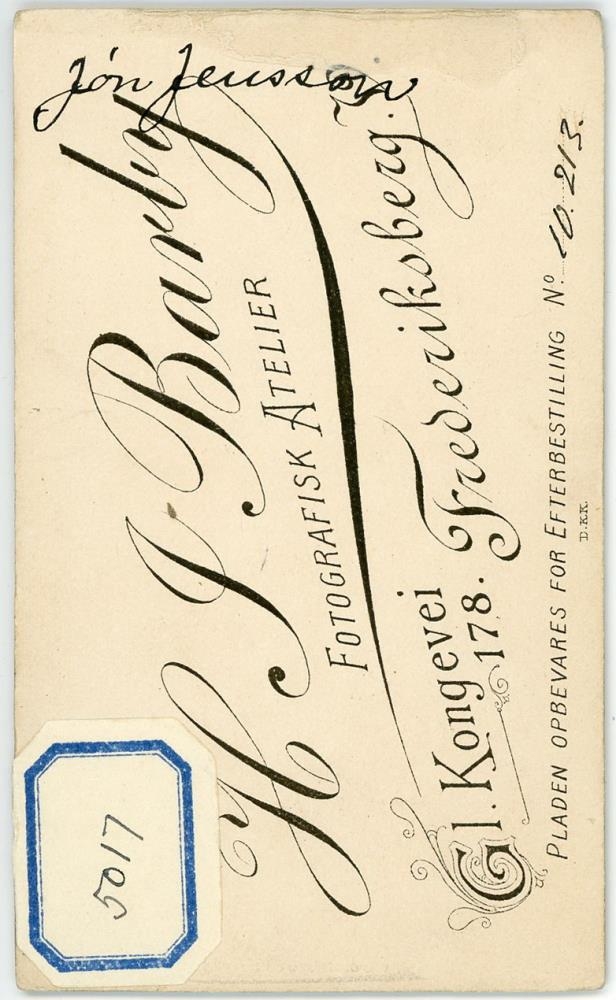 Jón Jensson
H I Barby
FOTOGRAFISK ATELIER
Gl. Kongevei
178. Frederiksberg.
PLADEN OPBEVARES FOR EFTERBESTILLING No. 10.213.
D.K.K.
5017